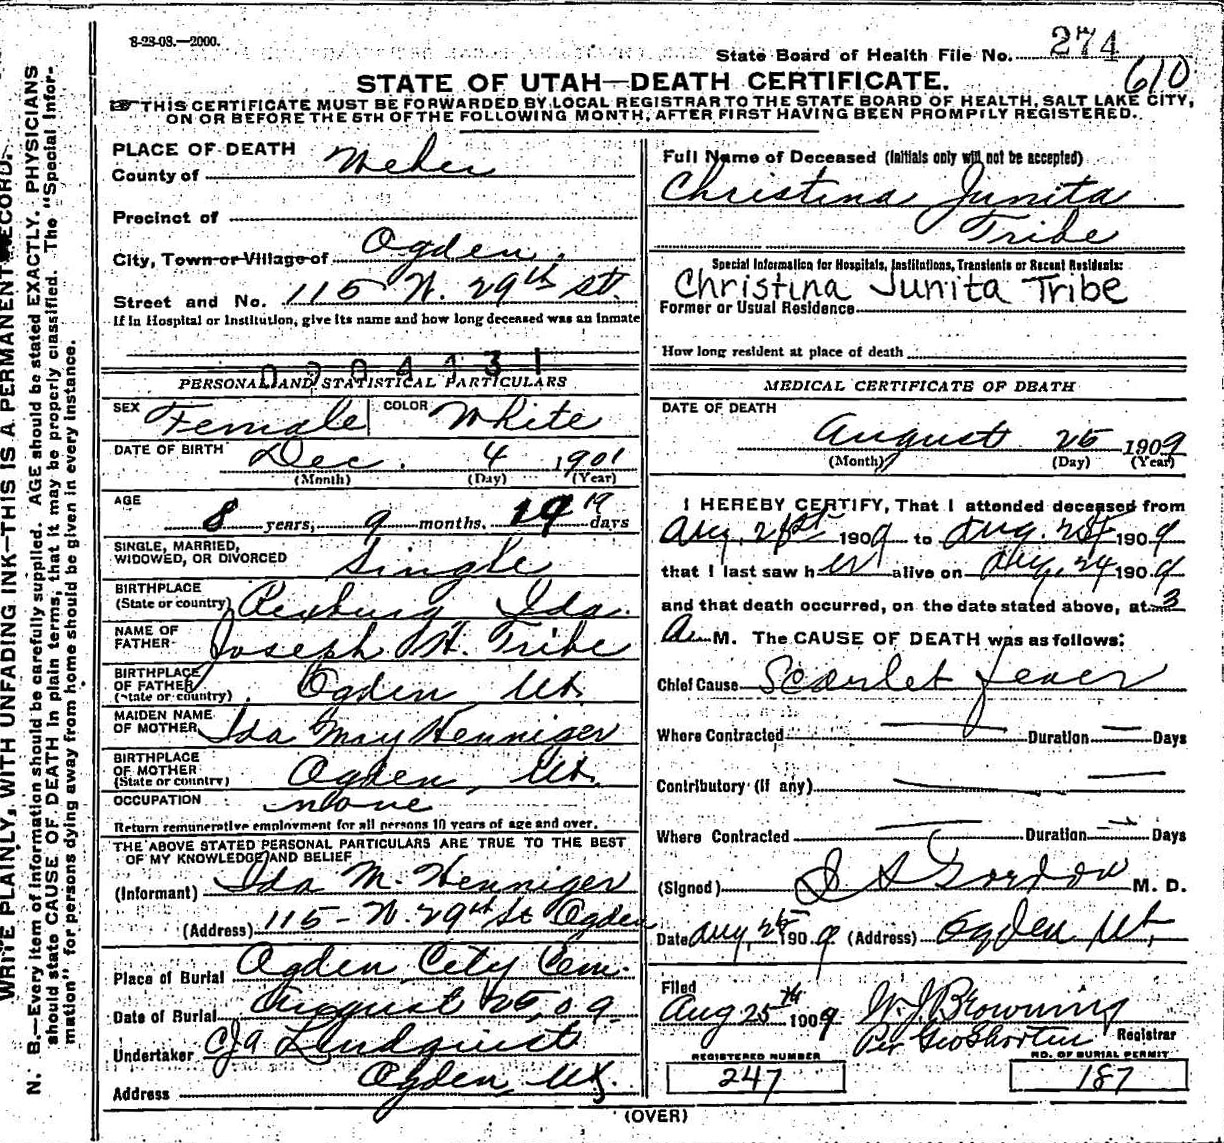 8-28-08.—2000.
State Board of Health File No. 274
610
STATE OF UTAH—DEATH CERTIFICATE.
THIS CERTIFICATE MUST BE FORWARDED BY LOCAL REGISTRAR TO THE STATE BOARD OF HEALTH, SALT LAKE CITY,
ON OR BEFORE THE 5TH OF THE FOLLOWING MONTH, AFTER FIRST HAVING BEEN PROMPTLY REGISTERED.
WRITE PLAINLY, WITH UNFADING INK—THIS IS A PERMANENT RECORD.
N. B.—Every item of information should be carefully supplied. AGE should be stated EXACTLY. PHYSICIANS
should state CAUSE OF DEATH in plain terms, that it may be properly classified. The "Special Infor-
mation" for persons dying away from home should be given in every instance.
PLACE OF DEATH
County of Weber
Precinct of
City, Town or Village of Ogden.
Street and No. 115 W. 29th St.
If in Hospital or Institution, give its name and how long deceased was an inmate
PERSONAL AND STATISTICAL PARTICULARS
SEX Female COLOR White
DATE OF BIRTH Dec. 4 1901
(Month) (Day) (Year)
AGE
8 years, 9 months. 19 19 days
SINGLE, MARRIED,
WIDOWED, OR DIVORCED Single
BIRTHPLACE
(State or country) Rexburg Ida.
NAME OF
FATHER Joseph H. Tribe
BIRTHPLACE
OF FATHER
(State or country) Ogden Ut.
MAIDEN NAME
OF MOTHER Ida May Henniger
BIRTHPLACE
OF MOTHER
(State or country) Ogden, Ut.
OCCUPATION none
Return remunerative employment for all persons 10 years of age and over.
THE ABOVE STATED PERSONAL PARTICULARS ARE TRUE TO THE BEST
OF MY KNOWLEDGE AND BELIEF
(Informant) Ida M. Henniger
(Address) 115 - W. 29th St Ogden
Place of Burial Ogden City Cem.
Date of Burial August 25, 09.
Undertaker Lindquist
Address Ogden Ut.
Full Name of Deceased (Initials only will not be accepted)
Christina Junita
Tribe
Special Information for Hospitals, Institutions, Transients or Recent Residents:
Christina Junita Tribe
Former or Usual Residence
How long resident at place of death
MEDICAL CERTIFICATE OF DEATH
DATE OF DEATH
August 25 1909
(Month) (Day) (Year)
I HEREBY CERTIFY, That I attended deceased from
Aug. 21st 1909 to Aug. 1909
that I last saw her alive on Aug. 24 1909
and that death occurred, on the date stated above, at 3
A. M. The CAUSE OF DEATH was as follows:
Chief Cause Scarlet fever
Where Contracted — Duration — Days
Contributory (if any)
Where Contracted — Duration — Days
(Signed) Gordon M. D.
Date Aug. 25 1909 (Address) Ogden Ut.
Filed
Aug 25th 1909 W. J. Browning
Per Geo Shorten Registrar
REGISTERED NUMBER
247
NO. OF BURIAL PERMIT
187
(OVER)